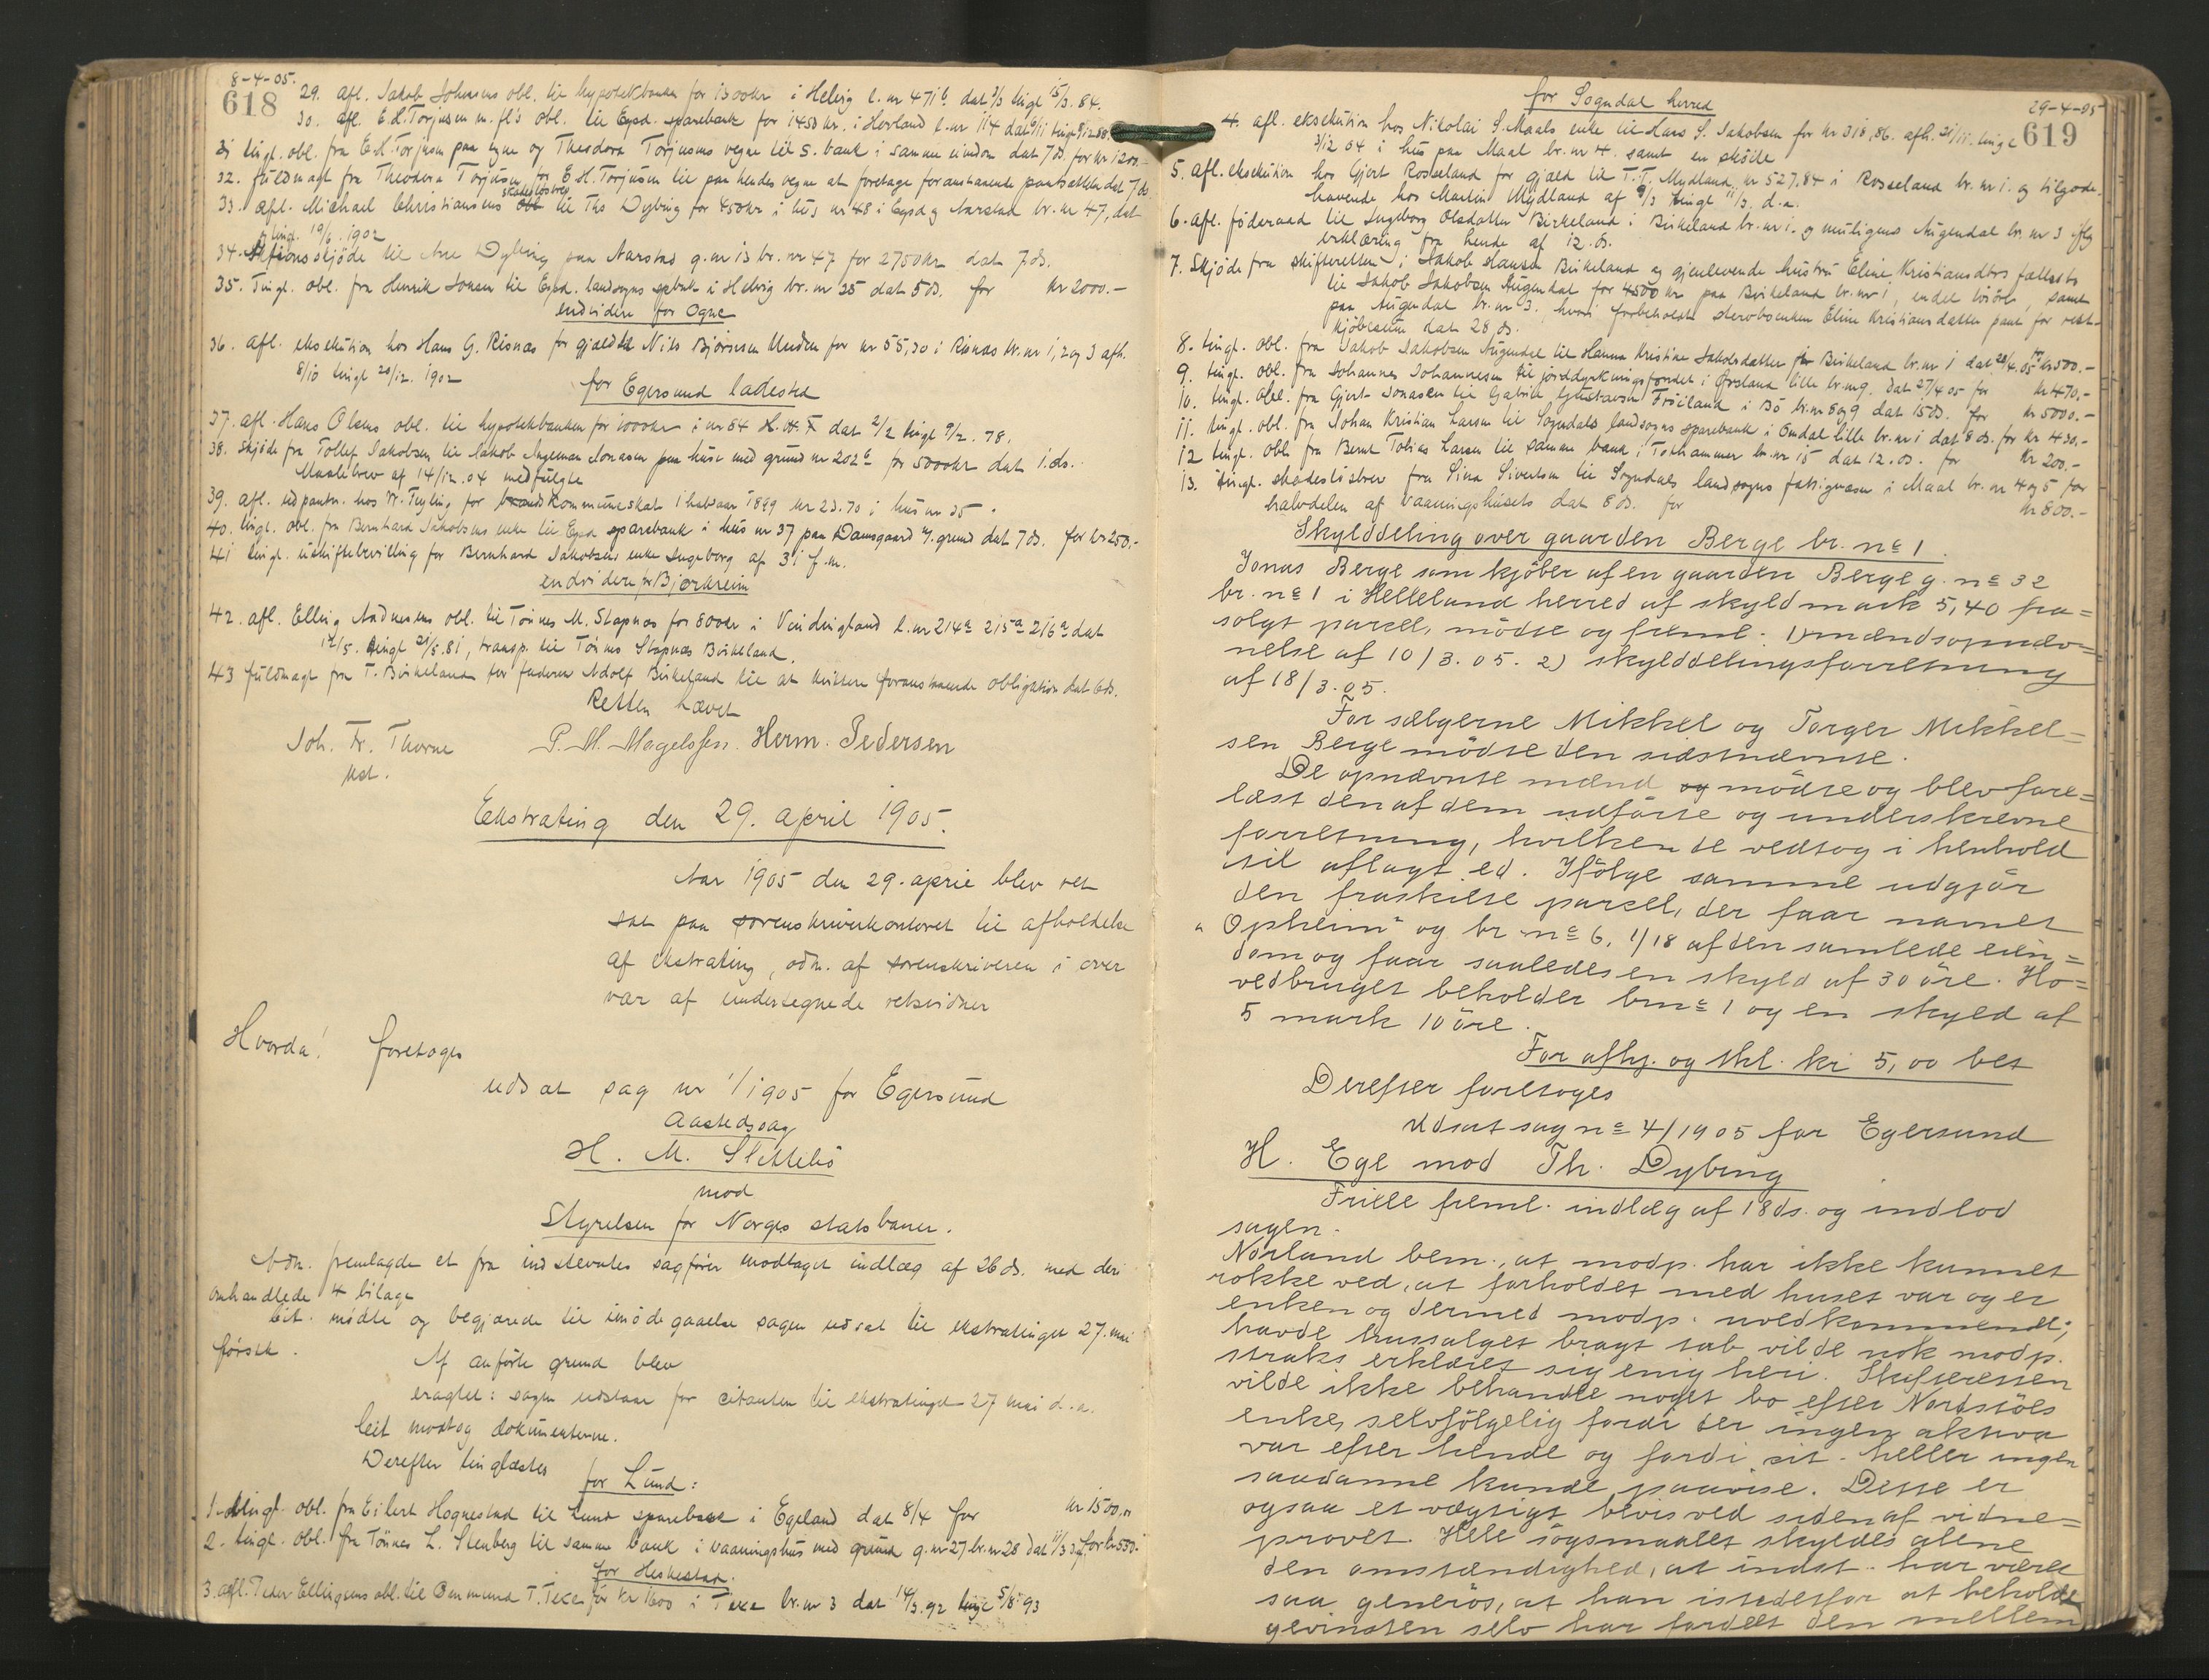 8-4-05.
618
29. afl. Jakob Johnsens obl. til hypotekbanken for 1300kr i Helvig l. nr 471b dat 3/3 tingl 15/3. 84.
30. afl. E. H. Torjusen m. fl's obl. til Egsd. sparebank for 1450 kr. i Hovland l. nr 114 dat 6/11 tingl 8/12 88.
31 tingl. obl. fra E. H. Torjusen paa egne og Theodora Torjusens vegne til s. bank i samme eiendom dat 7ds. for kr 1200.-
32. fuldmagt fra Theodora Torjusen for E. H. Torjusen til paa hendes vegne at foretage foranstaaende pantsættelse dat 7ds.
33. afl. Michael Christiansens skadesløsbrev til Ths Dybing for 450kr i hus nr 48 i Egsd og Aarstad br. nr 47, dat
og tingl. 19/6. 1902
34. Auktionsskjøde til Ane Dybing paa Aarstad g. nr 13 br. nr 47 for 2750kr dat 7.ds.
35. Tingl. obl. fra Henrik Jonsen til Egsd. landsogns spbank i Helvig br. nr 25 dat 5ds. for kr 2000.-
endvidere for Ogne
36. afl. eksekution hos Hans G. Risnæs for gjæld til Nils Bjørnsen Uuden for kr 55,30 i Risnæs br. nr 1, 2 og 3 afh.
8/10 tingl 20/12. 1902
for Egersund ladested
37. afl. Hans Olsens obl. til hypotekbanken for 1000kr i nr 84 dat 2/2 tingl 9/2. 78.
38. skjøde fra Tollef Jakobsen til Jakob Ingeman Jonasen paa huse med grund nr 202b for 5000kr dat 1.ds.
Maalebrev af 14/12. 04 medfulgte
39. afl. udpantn. hos W. Feyling for kommuneskat 1 halvaar 1899 kr 23.70 i hus nr 35.
40. tingl. obl. fra Bernhard Jakobsens enke til Egsd sparebank i hus nr 37 paa Damsgaard m. grund dat 7ds. for kr 250.-
41 tingl. uskiftebevilling for Bernhard Jakobsens enke Ingeborg af 31 f. m.
endvidere for Bjerkreim
42. afl. Elling Aadnesens obl. til Tönnes M. Stapnæs for 800kr i Vindingland l. nr 214a 215a 216a dat
12/5. tingl 21/5.81, transp. til Tönnes Stapnæs Birkeland.
43 fuldmagt fra T. Birkeland for faderen Adolf Birkeland til at kvittere foranstaaende obligation dat 6ds.
Retten hævet
Joh. Fr. Thorne P. M. Magelssen. Herm. Pedersen
kst.
Ekstrating den 29. april 1905.
Aar 1905 den 29. april blev ret
sat paa sorenskriverkontoret til afholdelse
af ekstrating, adm. af sorenskriveren i over
vær af undertegnede retsvidner
Hvorda! foretoges
udsat sag nr 1/1905 for Egersund
Aastedssag
H. M. Slettebö
mod
Styrelsen for Norges statsbaner.
Adm. fremlagde et fra indstevntes sagfører modtaget indlæg af 26 ds. med deri
omhandlede 4 bilage
Cit. mødte og begjærede til imødegaaelse sagen udsat til ekstratinget 27. mai
førstk.
Af anførte grund blev
eragtet: sagen udstaar for citanten til ekstratinget 27 mai d. a.
Cit modtog dokumenterne.
Derefter tinglæstes
for Lund:
1. tingl. obl. fra Eilert Hognestad til Lund sparebank i Egeland dat 8/4 for kr 1500,00
2. tingl. obl. fra Tönnes L. Stenberg til samme bank i vaaningshus med grund g. nr 27 br. nr 28 dat 11/3 d.a. for kr 550.-
for Heskestad.
3. afl. Peder Ellingsens obl. til Ommund T. Teke for kr 1600 i Teke br. nr 3 dat 14/3. 92 tingl 5/8. 93
29-4-05
619
for Sogndal herred
4. afl. eksekution hos Nikolai S. Maals enke til Hans S. Jakobsen for kr 318,86. afh. 21/11. tingl
3/12 04 i hus paa Maal br. nr 4. samt en skøite
5. afl. eksekution hos Gjert Rosseland for gjæld til T. T. Mydland kr 527.84 i Rosseland br. nr 1. og tilgode-
havende hos Martin Mydland af 9/3 tingl 11/3. d. a.
6. afl. föderaad til Ingeborg Olsdatter Birkeland i Birkeland br. nr 1. og neuligens Augendal br. nr 3 iflg
erklæring fra hende af 12. ds.
7. Skjöde fra skifteretten i Jakob Hansen Birkeland og gjenlevende hustru Eline Kristiansdtrs fællesbo
til Jakob Jakobsen Augendal for 4500 kr paa Birkeland br. nr 1, endel lösöre, samt
paa Augendal br. nr 3. hvori forbeholdt sterboenken Eline Kristiansdatter pant for rest-
kjöbesum dat 28 ds.
8. tingl. obl. fra Jakob Jakobsen Augendal til Hanna Kristine Jakobsdatter Birkeland br. nr 1 dat 28/4.05 for kr 500.-
9. tingl. obl. fra Johannes Johannesen til jorddyrkningsfondet i Ørsland lille br. nr 9. dat 27/4 05 for kr 470.-
10. tingl. obl. fra Gjert Jonasen til Gabriel Gustavsen Fröiland i Bö br. nr 8 og 9 dat 15ds. for kr 5000.-
11. tingl. obl. fra Johan Kristian Larsen til Sogndals landsogns sparebank i Omdal lille br. nr 1 dat 8 ds. for kr 430.-
12 tingl. obl fra Bernt Tobias Larsen til samme bank i Tothammer br. nr 15 dat 12. ds. for kr 200.-
13. tingl. skadeslösbrev fra Sina Sivertsen til Sogndals landsogns fattigvæsen i Maal br. nr 4 og 5 for
halvdelen af vaaningshusets dat 8 ds. for kr 800.-
Skylddeling over gaarden Berge br. no 1.
Jonas Berge som kjöber af en gaarden Berge g. no 32
br. no 1 i Helleland herred af skyld mark 5,40 fra=
solgt parcel, mödte og freml. 1) mændsopnæv=
nelse af 10/3. 05. 2) skylddelingsforretning
af 18/3. 05.
For sælgerne Mikkel og Torger Mikkel=
sen Berge mödte den sidstnævnte.
De opnævnte mænd mödte og blev fore=
læst den af dem udförte og underskrevne
forretning, hvilken de vedtog i henhold
til aflagt ed. Ifölge samme udgjör
den fraskilte parcel, der faar navnet
„Opheim“ og br no 6, 1/18 af den samlede eien=
dom og faar saaledes en skyld af 30 öre. Ho=
vedbruget beholder brno 1 og en skyld af
5 mark 10 öre.
For afhj. og thl. kr 5,00 bet
Derefter foretoges
Udsat sag no 4/1905 for Egersund
H. Ege mod Th. Dybing
Friele freml. indlæg af 18 ds. og indlod
sagen.
Nörland bem., at modp. har ikke kunnet
rokke ved, at forholdet med huset var og er
enken og dermed modp. uvedkommende;
havde hussalget bragt tab vilde nok modp.
straks erklæret sig enig heri. Skifteretten
vilde ikke behandle noget bo efter Nordstöls
enke, selvfölgelig fordi der ingen aktiva
var efter hende og fordi cit. heller ingen
saadanne kunde paavise. Dette er
ogsaa et vægtigt bevis ved siden af vidne=
provet. Hele sögsmaalet skyldes alene
den omstændighed, at indst. har været
saa generös, at han istedetfor at beholde
gevinsten selv har fordelt den mellem